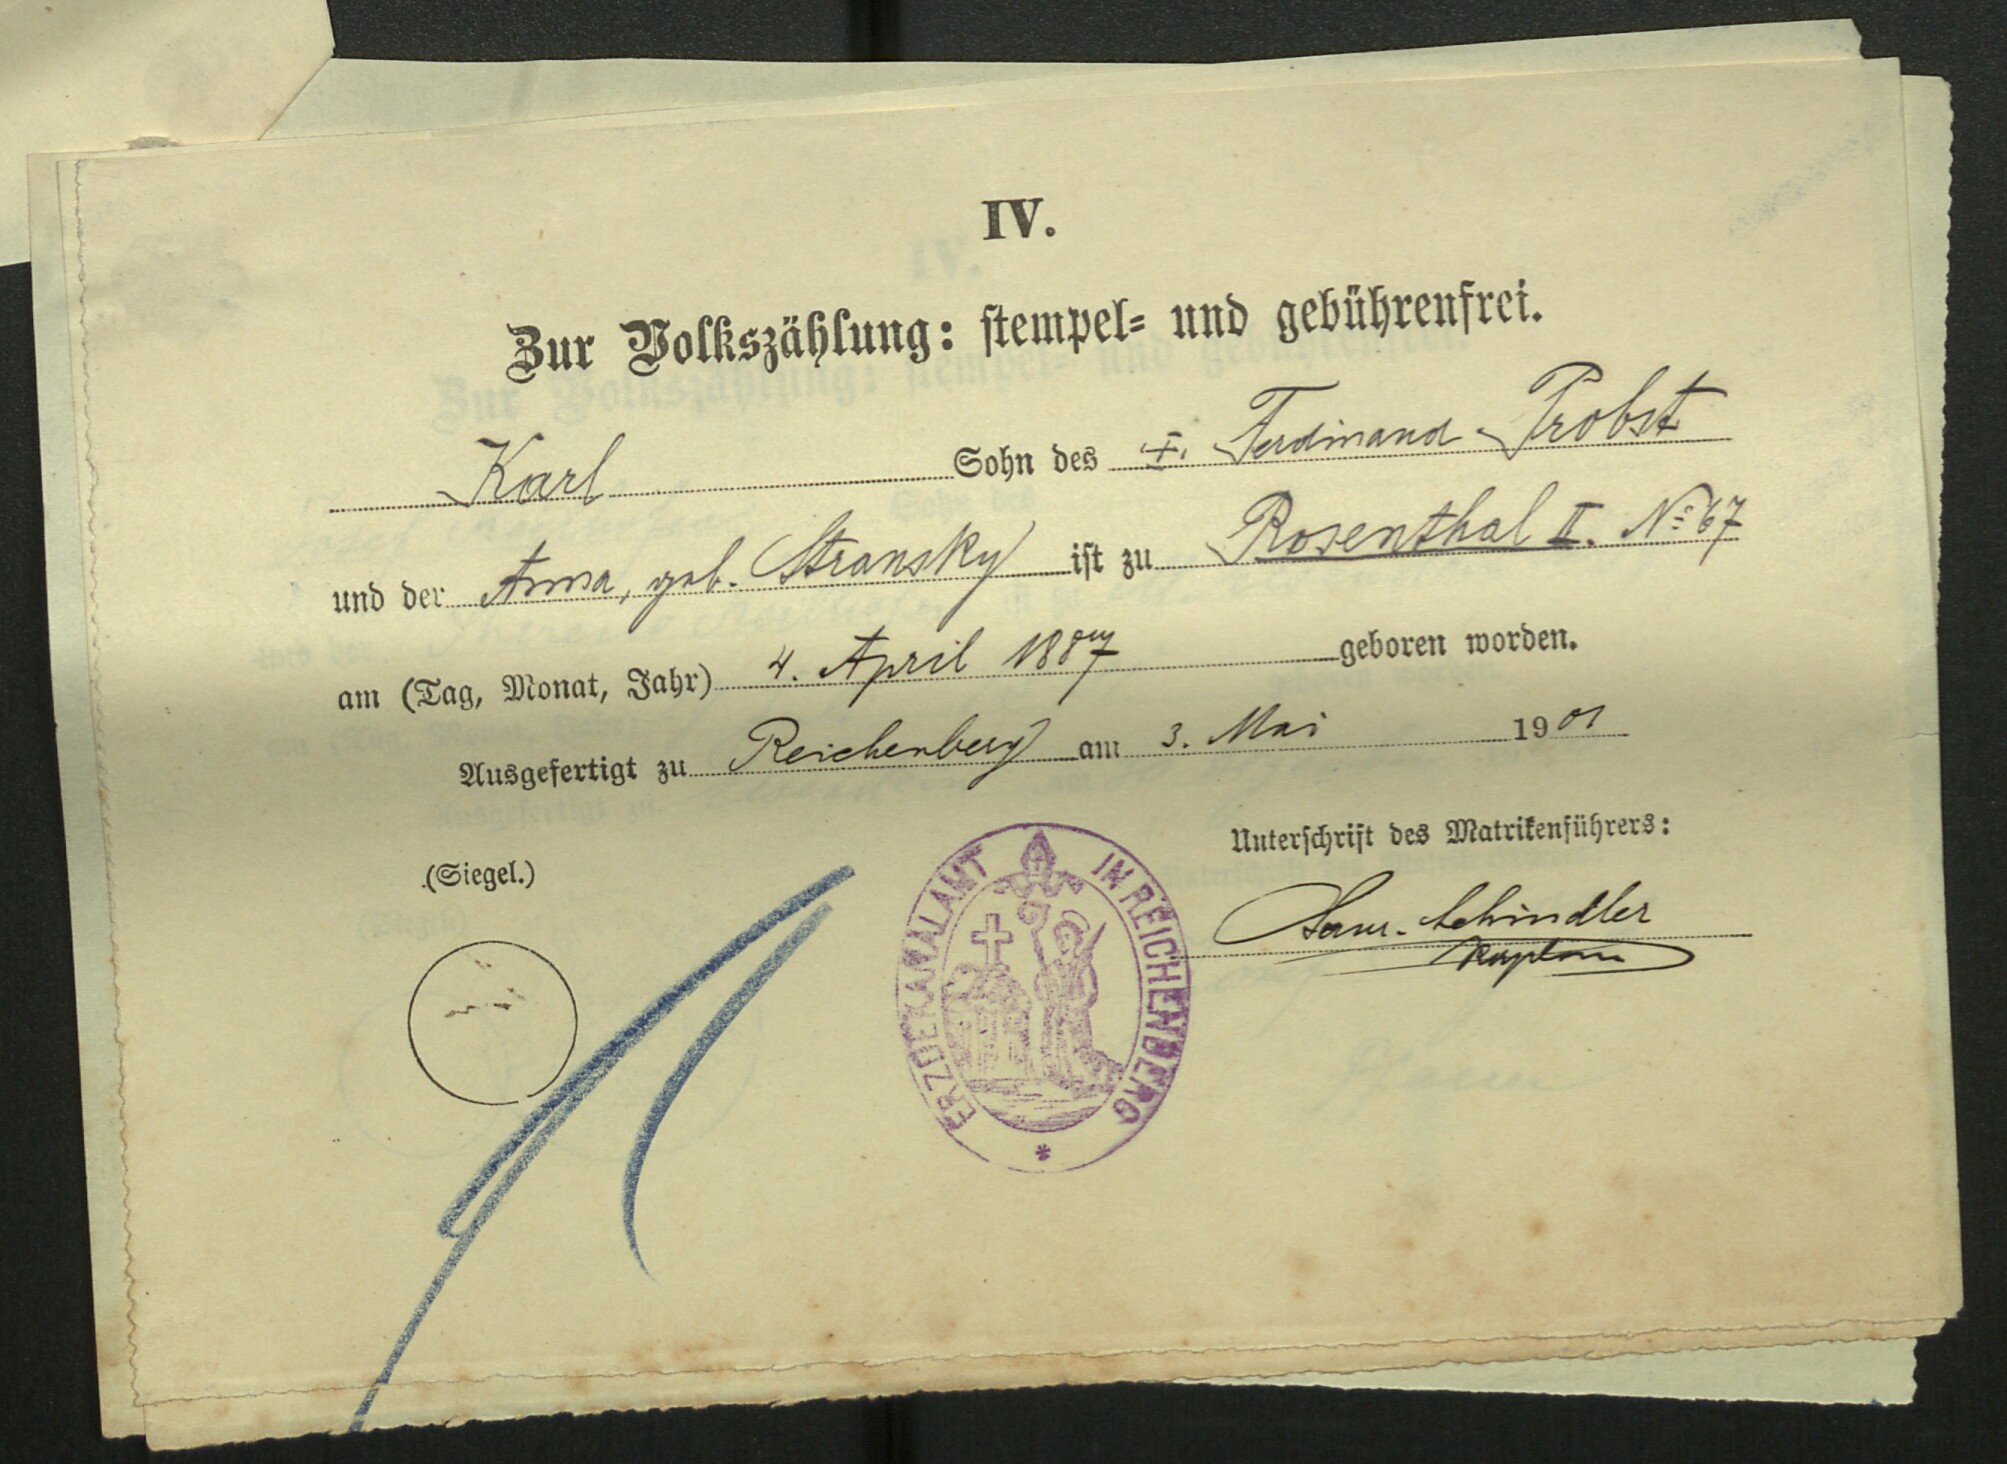 IV.
Zur Volkszählung: stempel- und gebührenfrei.
Karl Sohn des †. Ferdinand Probst
und der Anna, geb. Stransky ist zu Rosenthal II. № 67
am (Tag, Monat, Jahr) 4. April 1887 geboren worden.
Ausgefertigt zu Reichenberg am 3. Mai 1901
Unterschrift des Matrikenführers:
(Siegel.)
ERZDEKANALAMT IN REICHENBERG
Schindler
Kaplan